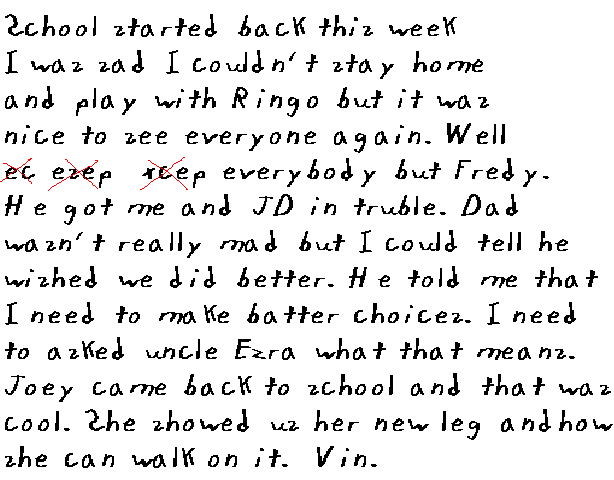 School started back this week
I was sad I couldn't stay home
and play with Ringo but it was
nice to see everyone again. Well
ec esep xcep everybody but Fredy.
He got me and JD in truble. Dad
wasn't really mad but I could tell he
wished we did better. He told me that
I need to make batter choices. I need
to asked uncle Ezra what that means.
Joey came back to school and that was
cool. She showed us her new leg and how
she can walk on it. Vin.